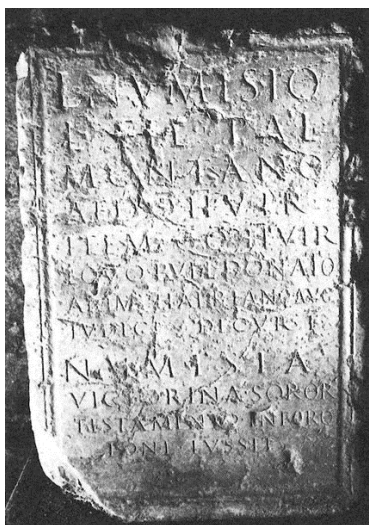 L NVMISIO
L FIL PAL
MONTANO
AED Q II VIR
ITEM Q Q II VIR
EQVO PVBL DONATO
AB IMP HADRIANO AVG
IVDICI DECVR I
NVMISIA
VICTORINA SOROR
TESTAMENTO IN FORO
PONI IVSSIT